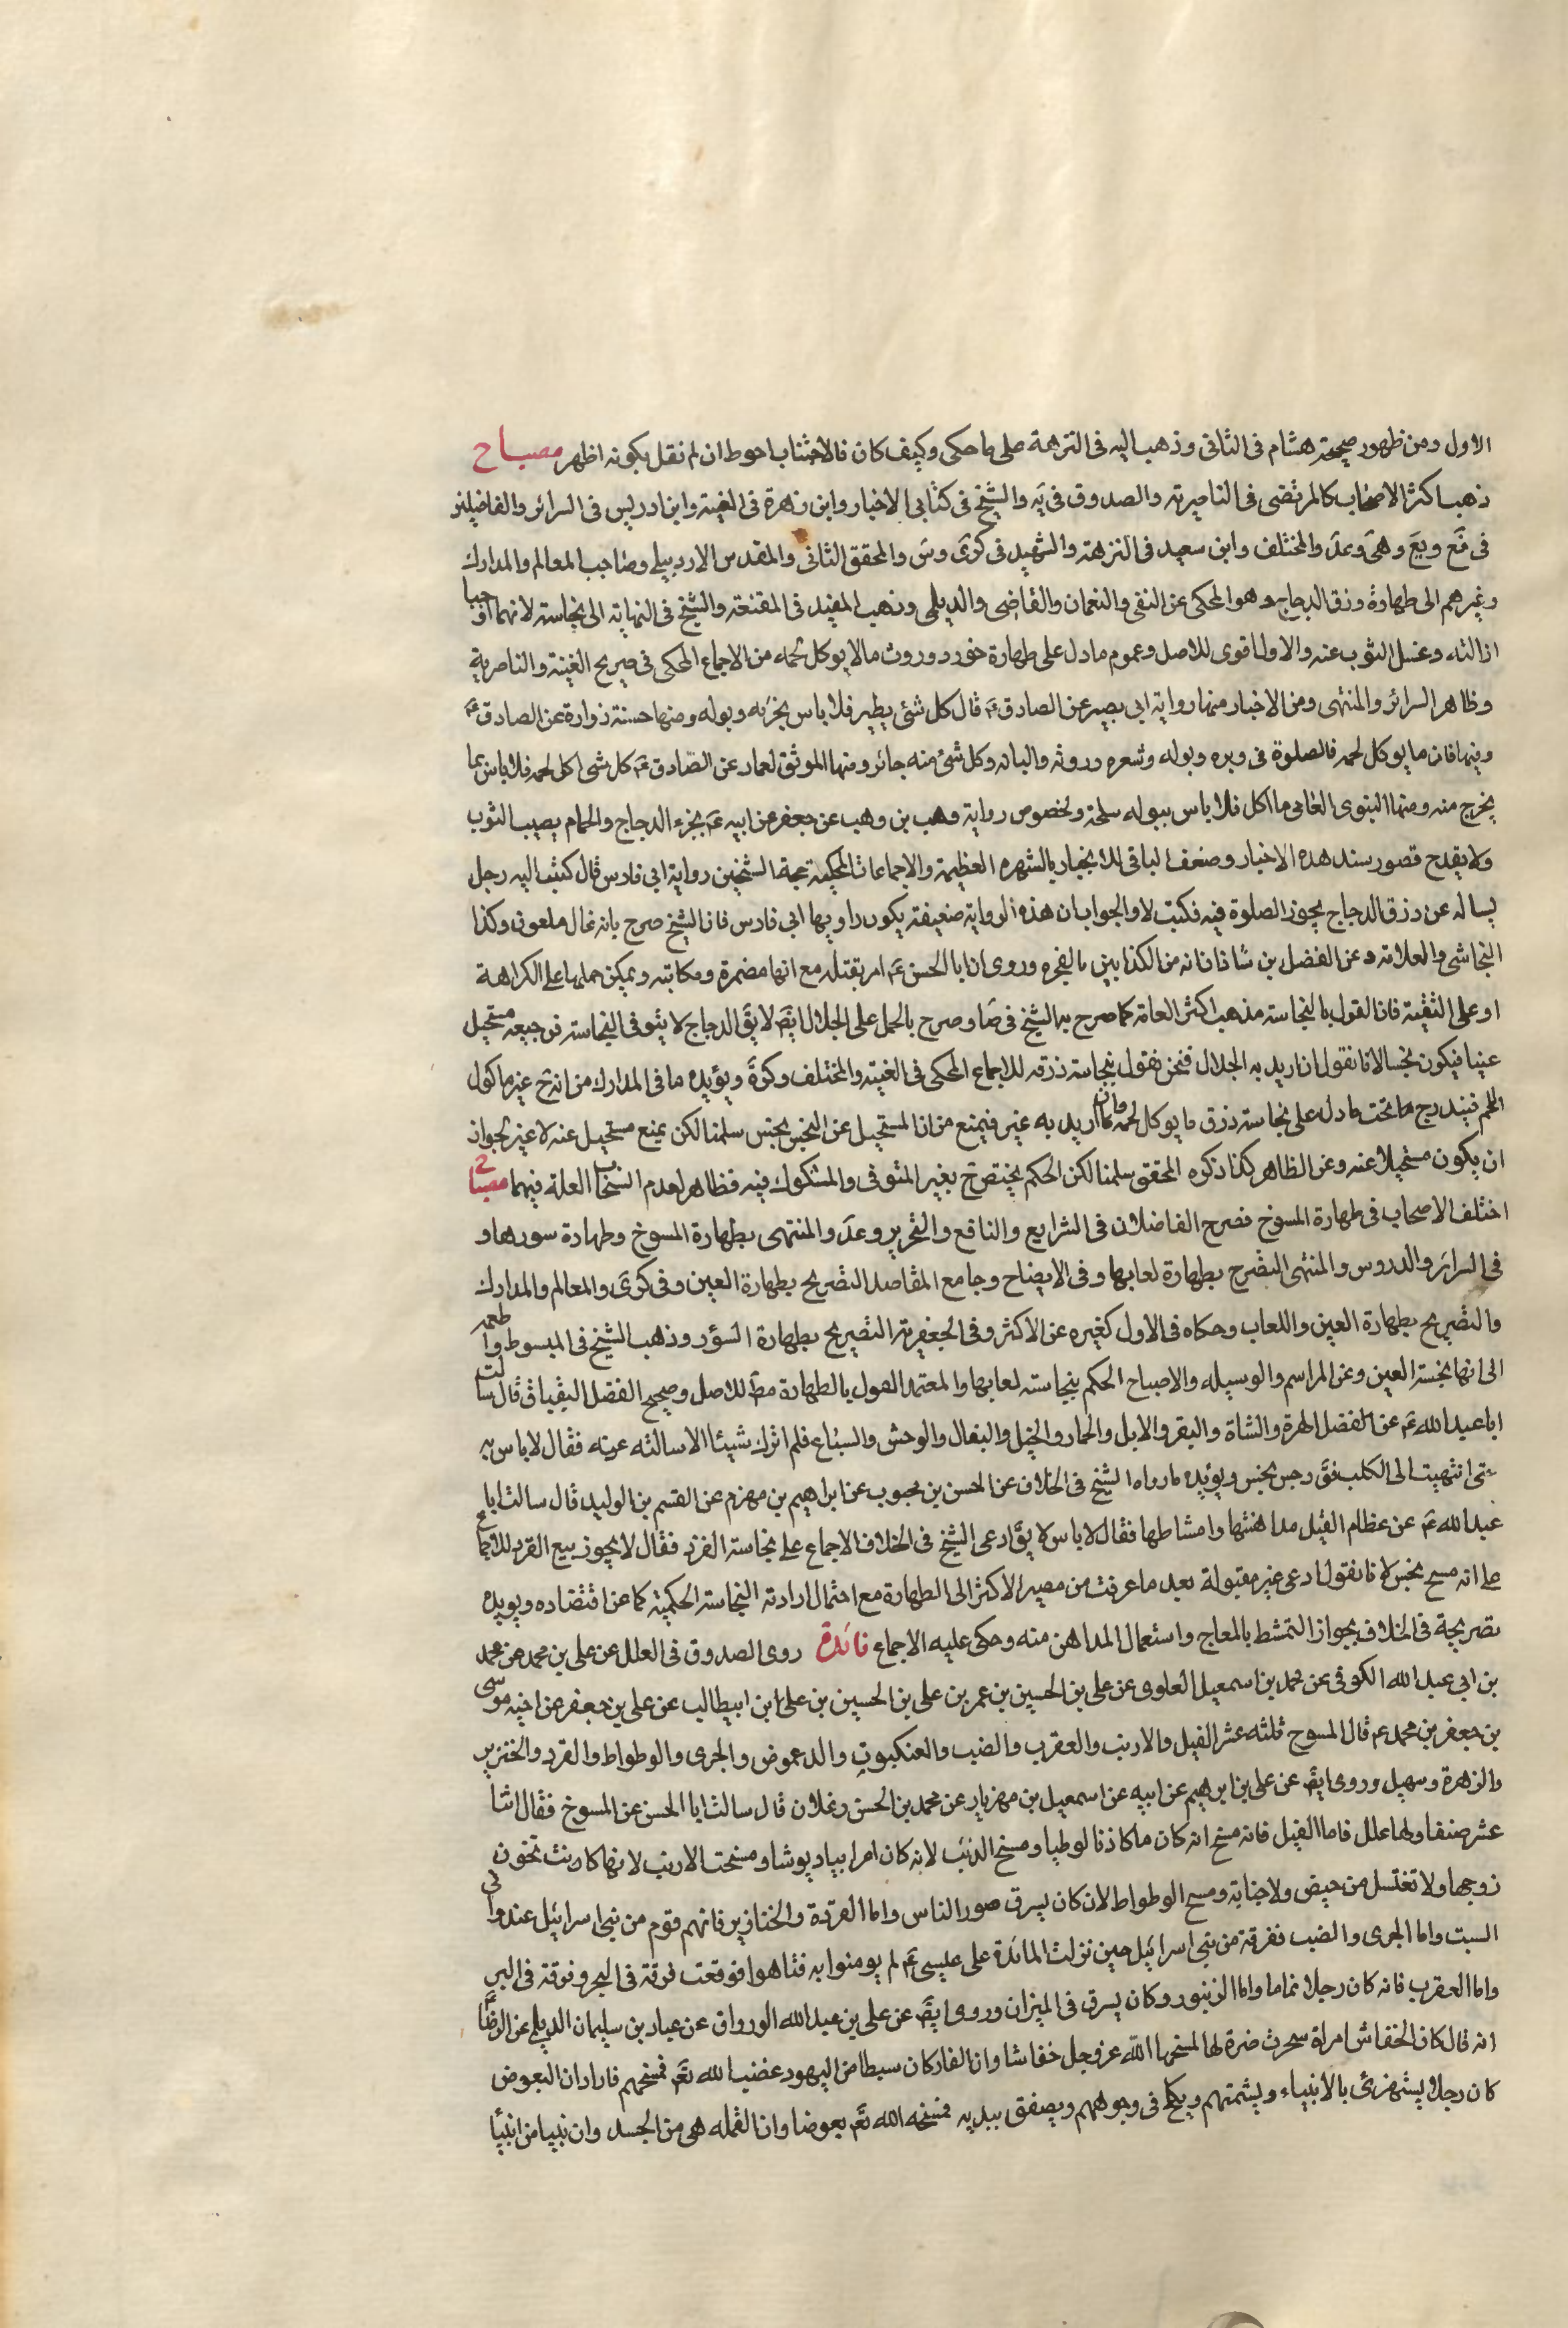 الاول ومن ظهور صحيحة هشام فى الثانى وذهب اليه فى النزهة على ما حكى وكيف كان فالاجتناب احوط ان لم نقل بكونه اظهر مصباح
ذهب اكثر الاصحاب كالمرتضى فى الناصرية والصدوق فى يَه والشيخ فى كتابى الاخبار وابن زهرة فى الغنية وابن ادريس فى السرائر والفاضلين
فى فَع ويَع وهَى وعَد والمختلف وابن سعيد فى النزهة والشهيد فى كرَى وسَ والمحقق الثانى والمقدس الاردبيلى وصاحب المعالم والمدارك
وغيرهم الى طهارة ذرق الدجاج وهو المحكى عن التقى والنعمان والقاضى والديلمى وذهب المفيد فى المقنعة والشيخ فى النهاية الى نجاسته لانهما اوجبا
ازالته وغسل الثوب عنه والاول اقوى للاصل وعموم ما دل على طهارة خرء وروث ما لا يوكل لحمه من الاجماع المحكى فى صريح الغنية والناصرية
وظاهر السرائر والمنتهى ومن الاخبار منها رواية ابى بصير عن الصادق عَ قال كل شئ يطير فلا باس بخرئه وبوله ومنها حسنة زرارة عن الصادق عَ
وفيها فان ما يوكل لحمه فالصلوة فى وبره وبوله وشعره وروثه والبانه وكل شئ منه جائز ومنها الموثق لعمار عن الصادق عَ كل شى اكل لحمه فلا باس بما
يخرج منه ومنها النبوى العامى ما اكل فلا باس ببوله سلحه ولخصوص رواية وهب بن وهب عن جعفر عن ابيه عَ بخرء الدجاج والحمام يصيب الثوب
ولا يقدح قصور سند هذه الاخبار وضعف الباقى للانجبار بالشهره العظيمة والاجماعات المحكية حجة الشيخين رواية ابى فارس قال كتب اليه رجل
يساله عن ذرق الدجاج يجوز الصلوة فيه فكتب لا والجواب ان هذه الرواية ضعيفة بكون راويها ابى فارس فان الشيخ صرح بانه غال ملعون وكذا
النجاشى والعلامة وعن الفضل بن شاذان انه من الكذابين بالفجره وروى ان ابا الحسن عَ امر بقتله مع انها مضمرة ومكاتبة ويمكن حملها على الكراهة
او على التقية فان القول بالنجاسة مذهب اكثر العامة كما صرح به الشيخ فى صَا وصرح بالحمل على الجلال ايضَ لا يقَ الدجاج لا يتوقى النجاسة فرجيعه مستحيل
عينا فيكون نجسا لانا نقول ان اريد به الجلال فنحن نقول بنجاسة ذرقه للاجماع المحكى فى الغنية والمختلف وكرَة ويؤيده ما فى المدارك من انه ح غير ماكول
اللحم فيندرج ما تحت ما دل على نجاسة ذرق ما يوكل لحمه وان اريد به غير فيمنع من ان المستحيل عن النجس نجس سلمنا لكن يمنع مستحيل عنه لا غير لجواز
ان يكون مستحيلا عنه وعن الظاهر كذا ذكره المحقق سلمنا لكن الحكم يختص ح بغير المتوقى والمشكوك فيه فظاهر لعدم العلة فيهما مصباح
اختلف الاصحاب فى طهارة المسوخ فصرح الفاضلان فى الشرايع والنافع والتحرير وعَد والمنتهى بطهارة المسوخ وطهارة سورها و
فى السرائر والدروس والمنتهى التصريح بطهارة لعابها وفى الايضاح وجامع المقاصد التصريح بطهارة العين وفى كرَى والمعالم والمدارك
والتصريح بطهارة العين واللعاب وحكاه فى الاول كغيره عن الاكثر وفى الجعفرية التصريح بطهارة السؤر وذهب الشيخ فى المبسوط واطعمه
الى انها نجسة العين وعن المراسم والوسيله والاصباح الحكم بنجاسة لعابها والمعتمد القول بالطهارة مطَ للاصل وصحيح الفضل البقباق قال سالت
ابا عبد الله عَ عن الفضل الهرة والشاة والبقر والابل والحمار والخيل والبغال والوحش والسباع فلم اترك شيئا الا سالته عنه فقال لا باس به
حتى انتهيت الى الكلب فقَ رجس نجس ويؤيده ما رواه الشيخ فى الخلاف عن الحسن بن محبوب عن ابراهيم بن مهزم عن القسم بن الوليد قال سالت ابا
عبد الله عَ عن عظام الفيل مداهنتها وامشاطها فقال لا باس لا يقَ ادعى الشيخ فى الخلاف الاجماع على نجاسة القرد فقال لا يجوز بيع القرد للاجماع
على انه مسخ نجس لانا نقول ادعى غير مقبولة بعد ما عرفت من مصير الاكثر الى الطهارة مع احتمال ارادته النجاسة الحكمية كما عن اقتضاده ويويده
تصريحة فى الخلاف بجواز التمشط بالعاج واستعمال المداهن منه وحكى عليه الاجماع فائدة روى الصدوق فى العلل عن على بن محمد عن محمد
بن ابى عبد الله الكوفى عن محمد بن اسمعيل العلوى عن على بن الحسين بن عمر بن على بن الحسين بن على ابن ابيطالب عن على بن جعفر عن اخيه موسى
بن جعفر بن محمد عَ قال المسوخ ثلثه عشر الفيل والارنب والعقرب والضب والعنكبوت والدعموض والجرى والوطواط والقرد والخنزير
والزهرة وسهيل وروى ايضَ عن على بن ابرهيم عن ابيه عن اسمعيل بن مهزيار عن محمد بن الحسن زعلان قال سالت ابا الحسن عن المسوخ فقال اثنا
عشر صنفا ولها علل فاما الفيل فانه مسخ انه كان ملكا زنا لوطيا ومسخ الدئب لانه كان امرابياديوثا ومسخت الارنب لانها كانت تخون
زوجها ولا تغتسل من حيض ولا جنابة ومسح الوطواط لان كان يسرق صور الناس واما القردة والخنازير فانهم قوم من بنى اسرائيل عندوا فى
السبت واما الجرى والضب ففرقة من بنى اسرائيل حين نزلت المائدة على عليسى عَ لم يومنوا به فتاهوا فوقعت فرقة فى البحر وفرقة فى البر
واما العقرب فانه كان رجلا نماما واما الزنبور وكان يسرق فى الميزان وروى ايضَ عن على بن عبد الله الورواق عن عباد بن سليمان الديلى عن الرضا
انه قال كان الخفاش امراة سحرت ضرة لها المسخها الله عز وجل خفاشا وان الفار كان سبطا من اليهود غضب الله تعَ فمسخهم فارا وان البعوض
كان رجلا يستهزئ بالانبياء ويشمتهم ويكلح فى وجوههم ويصفق بيديه فمسخه الله تعَ بعوضا وان القمله هى من الجسد وان نبيا من انبيا